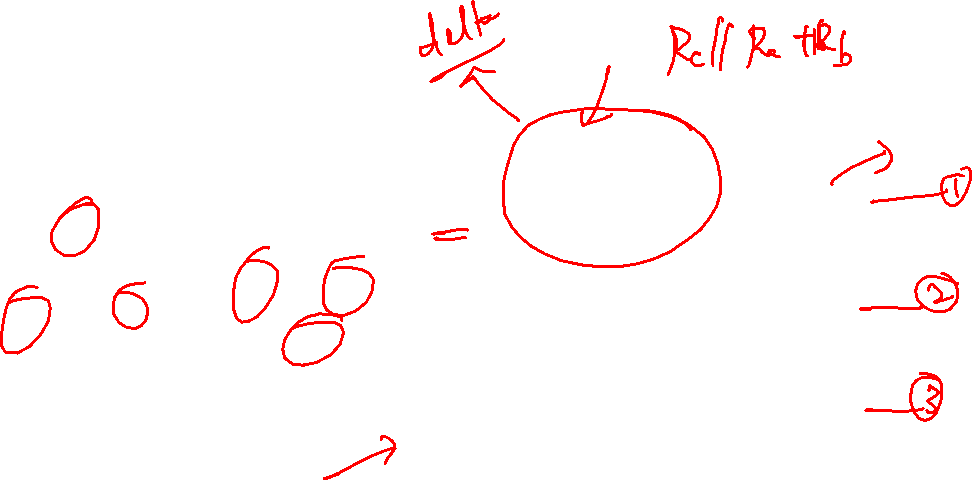 delta
Rc // Ra + Rb
=
1
2
3